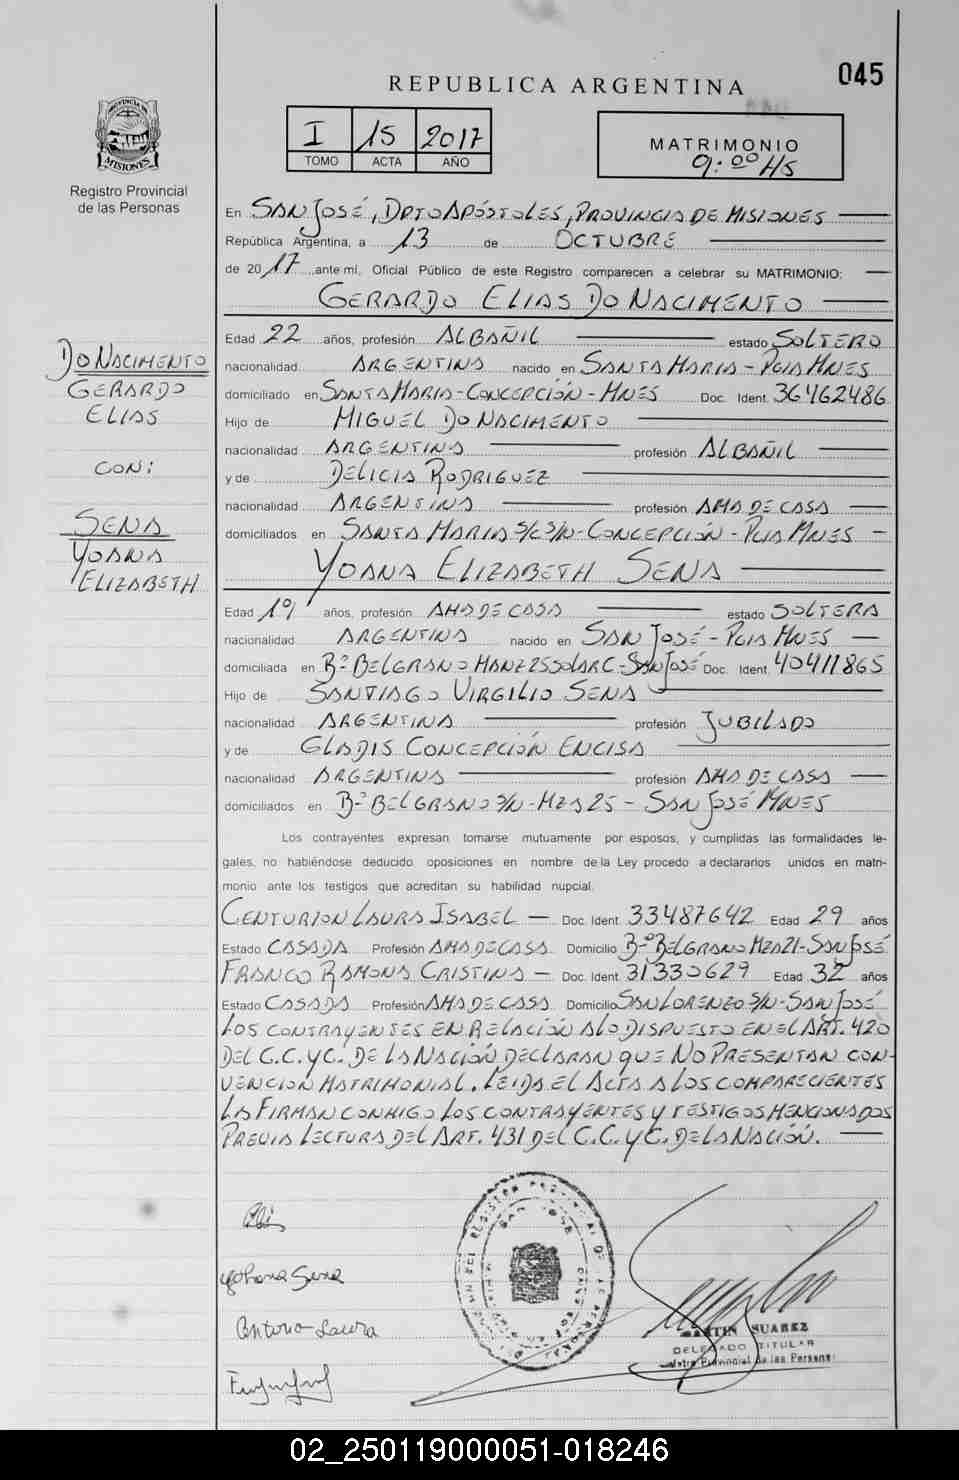 045
REPUBLICA ARGENTINA
I 15 2017
TOMO ACTA AÑO
MATRIMONIO
9:00 HS
PROVINCIA DE
MISIONES
Registro Provincial
de las Personas
En SAN JOSÉ, DPTO APÓSTOLES, PROVINCIA DE MISIONES
República Argentina, a 13 de OCTUBRE
de 2017 ante mí, Oficial Público de este Registro comparecen a celebrar su MATRIMONIO:
GERARDO ELIAS DO NACIMENTO
Edad 22 años, profesión ALBAÑIL estado SOLTERO
nacionalidad ARGENTINA nacido en SANTA MARIA - PCIA MNES
domiciliado en SANTA MARIA - CONCEPCIÓN - MNES Doc. Ident. 36462486
Hijo de MIGUEL DO NACIMENTO
nacionalidad ARGENTINA profesión ALBAÑIL
y de DELICIA RODRIGUEZ
nacionalidad ARGENTINA profesión AMA DE CASA
domiciliados en SANTA MARIA S/C S/N - CONCEPCIÓN - PCIA MNES -
DO NACIMENTO
GERARDO
ELIAS
CON:
SENA
YOANA
ELIZABETH
YOANA ELIZABETH SENA
Edad 19 años, profesión AMA DE CASA estado SOLTERA
nacionalidad ARGENTINA nacido en SAN JOSÉ - PCIA MNES -
domiciliada en Bº BELGRANO MANZ 25 SOLAR C - SAN JOSÉ Doc. Ident. 40411865
Hijo de SANTIAGO VIRGILIO SENA
nacionalidad ARGENTINA profesión JUBILADO
y de GLADIS CONCEPCIÓN ENCISA
nacionalidad ARGENTINA profesión AMA DE CASA
domiciliados en Bº BELGRANO S/N - MZA 25 - SAN JOSÉ MNES
Los contrayentes expresan tomarse mutuamente por esposos, y cumplidas las formalidades le-
gales, no habiéndose deducido oposiciones en nombre de la Ley procedo a declararlos unidos en matri-
monio ante los testigos que acreditan su habilidad nupcial.
CENTURION LAURA ISABEL - Doc. Ident. 33487642 Edad 29 años
Estado CASADA Profesión AMA DE CASA Domicilio Bº BELGRANO MZA 21 - SAN JOSÉ
FRANCO RAMONA CRISTINA - Doc. Ident. 31330629 Edad 32 años
Estado CASADA Profesión AMA DE CASA Domicilio SAN LORENZO S/N - SAN JOSÉ
LOS CONTRAYENTES EN RELACIÓN A LO DISPUESTO EN EL ART. 420
DEL C.C. Y C. DE LA NACIÓN DECLARAN QUE NO PRESENTAN CON-
VENCION MATRIMONIAL. LEIDA EL ACTA A LOS COMPARECIENTES
LA FIRMAN CONMIGO LOS CONTRAYENTES Y TESTIGOS MENCIONADOS
PREVIA LECTURA DEL ART. 431 DEL C.C. Y C. DE LA NACIÓN.
Yohana Sena
MARTIN SUAREZ
DELEGADO TITULAR
Provincial de las Personas
02_250119000051-018246